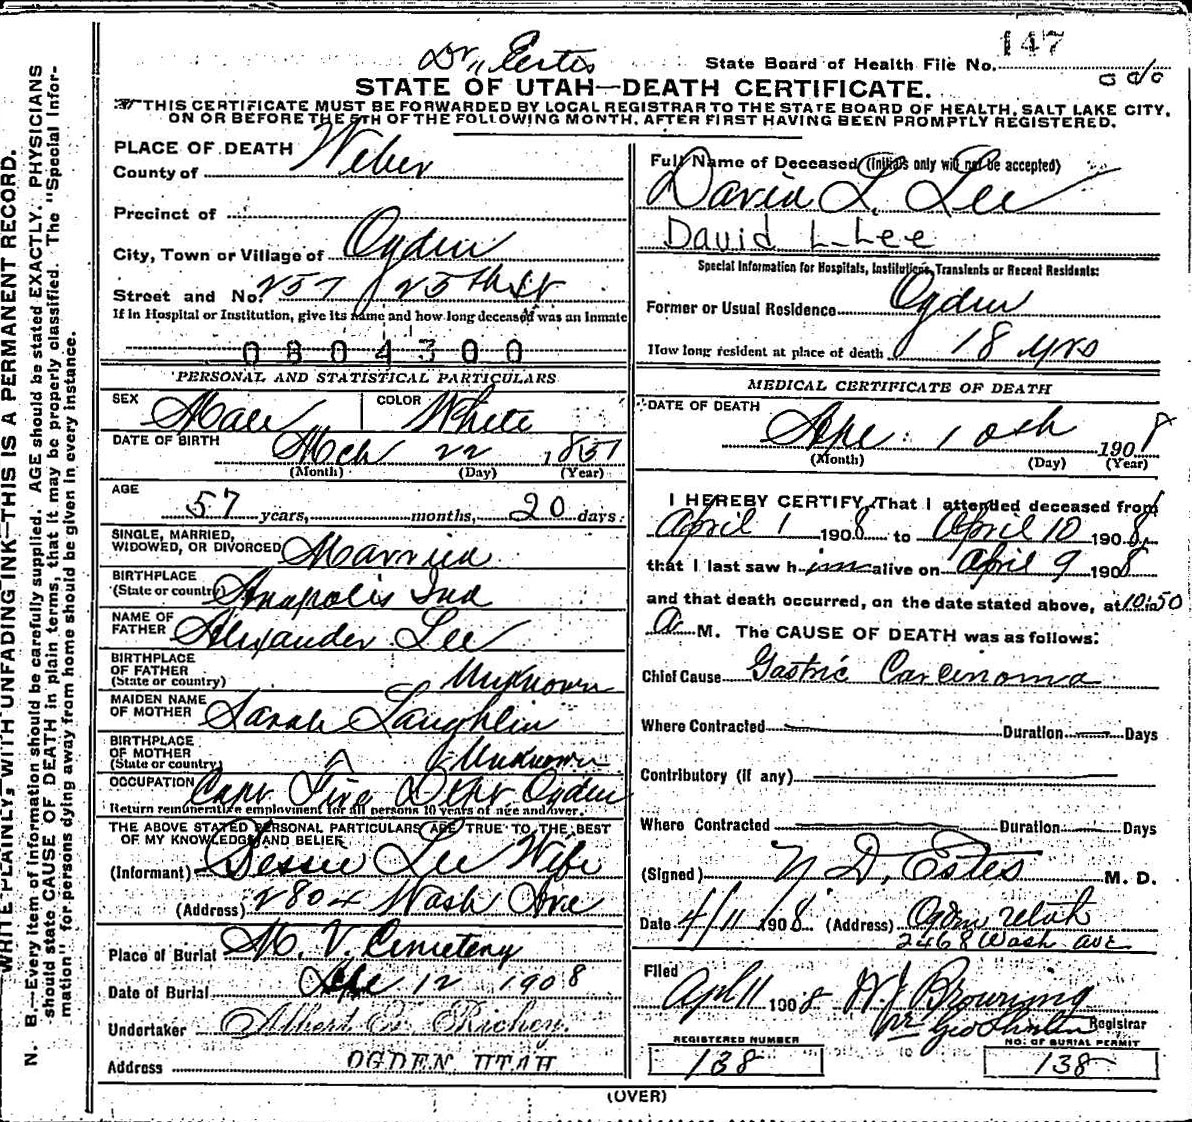 147
Dr. Estes
State Board of Health File No.
STATE OF UTAH—DEATH CERTIFICATE.
THIS CERTIFICATE MUST BE FORWARDED BY LOCAL REGISTRAR TO THE STATE BOARD OF HEALTH, SALT LAKE CITY,
ON OR BEFORE THE 5TH OF THE FOLLOWING MONTH, AFTER FIRST HAVING BEEN PROMPTLY REGISTERED.
WRITE PLAINLY, WITH UNFADING INK—THIS IS A PERMANENT RECORD.
N. B.—Every item of information should be carefully supplied. AGE should be stated EXACTLY. PHYSICIANS
should state CAUSE OF DEATH in plain terms, that it may be properly classified. The "Special Infor-
mation" for persons dying away from home should be given in every instance.
PLACE OF DEATH
County of Weber
Precinct of
City, Town or Village of Ogden
Street and No. 257 25th St
If in Hospital or Institution, give its name and how long deceased was an Inmate
0804300
PERSONAL AND STATISTICAL PARTICULARS
SEX Male COLOR White
DATE OF BIRTH Mch 22 1851
(Month) (Day) (Year)
AGE
57 years, months, 20 days.
SINGLE, MARRIED,
WIDOWED, OR DIVORCED Married
BIRTHPLACE
(State or country) Anapolis Ind
NAME OF
FATHER Alexander Lee
BIRTHPLACE
OF FATHER
(State or country) Unknown
MAIDEN NAME
OF MOTHER Sarah Laughlin
BIRTHPLACE
OF MOTHER
(State or country) Unknown
OCCUPATION Capt Fire Dept Ogden
Return remunerative employment for all persons 10 years of age and over.
THE ABOVE STATED PERSONAL PARTICULARS ARE TRUE TO THE BEST
OF MY KNOWLEDGE AND BELIEF
(Informant) Bessie Lee Wife
(Address) 2804 Wash Ave
Place of Burial M. V. Cemetery
Date of Burial Apr 12 1908
Undertaker Albert E. Richey.
Address OGDEN, UTAH
Full Name of Deceased (Initials only will not be accepted)
David L. Lee
David L Lee
Special Information for Hospitals, Institutions, Transients or Recent Residents:
Former or Usual Residence Ogden
How long resident at place of death 18 yrs
MEDICAL CERTIFICATE OF DEATH
DATE OF DEATH
Apr 10th 1908
(Month) (Day) (Year)
I HEREBY CERTIFY, That I attended deceased from
April 1 1908 to April 10 1908,
that I last saw him alive on April 9 1908
and that death occurred, on the date stated above, at 10:50
A. M. The CAUSE OF DEATH was as follows:
Chief Cause Gastric Carcinoma
Where Contracted Duration Days
Contributory (if any)
Where Contracted Duration Days
(Signed) N D. Estes M. D.
Date 4/11 1908 (Address) Ogden Utah
2468 Wash ave
Filed
Apl 11 1908 W J Browning
Registrar
REGISTERED NUMBER
138
NO. OF BURIAL PERMIT
138
(OVER)